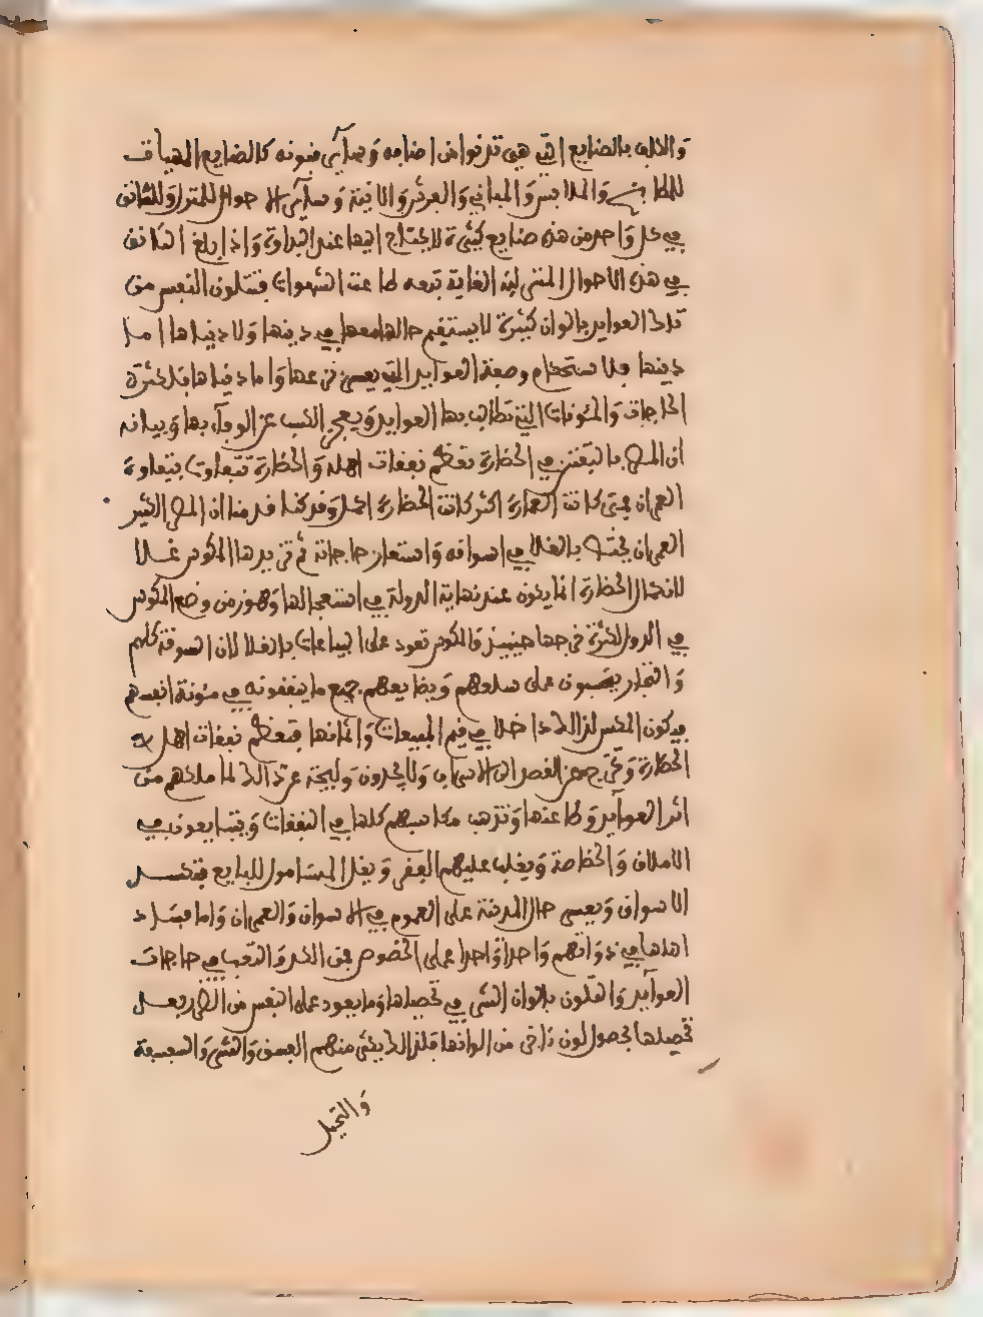 والكلف بالصنايع التي هي ترفو من اصنافه وساير فنونه كالصنايع المهياة
للمطابخ والملابس والمباني والفرش والانية وساير الاحوال للمنزل وللتانق
في كل واحد من هذه صنايع كثيرة لا يحتاج اليها عند البداوة واذا بلغ التانق
في هذه الاحوال المنزلية الغاية تبعه طاعة الشهوات فتتلون النفس من
تلك العوايد بالوان كثيرة لا يستقيم حالها معها في دينها ولا دنياها اما
دينها فلاستحكام وصبغة العوايد التي يعسر نزعها واما دنياها فلكثرة
الحاجات والمئونات التي تطالب بها العوايد ويعجز الكسب عن الوفاء بها وبيانه
ان المصر بالتفنن في الحظارة تعظم نفقات اهله والحظارة تتفاوت بتفاوة
العمران فمتى كانت العمارة اكثر كانت الحظارة اكمل وقد كنا قدمنا ان المصر الكثير
العمران يختص بالغلا في اسواقه واسعار حاجاته ثم تزيدها المكوس غلا
لان كمال الحظارة انما يكون عند نهاية الدولة في استفحالها وهو زمن وضع المكوس
في الدول لكثرة خرجها حينيذ والمكوس تعود على البياعات بالغلا لان السوقة كلهم
والتجار يحتسبون على سلعهم وبضايعهم جميع ما ينفقونه في مئونة انفسهم
فيكون المكس لذلك داخلا في قيم المبيعات واثمانها فتعظم نفقات اهل
الحظارة وتخرج عن القصد الى الاسراف ولا يجدون وليجة عن ذلك لما ملكهم من
اثر العوايد وطاعتها وتذهب مكاسبهم كلها في النفقات ويتتايعون في
الاملاق والخصاصة ويغلب عليهم الفقر ويقل المستامون للبضايع فتكسد
الاسواق ويفسد حال المدينة على العموم في الاسواق والعمران واما فساد
اهلها في ذواتهم واحدا واحدا على الخصوص فمن الكد والتعب في حاجات
العوايد والتلون بالوان الشر في تحصيلها وما يعود على النفس من الضرر بعد
تحصيلها بحصول لون اخر من الوانها فلذلك يكثر منهم الفسق والشر والسفسفة
والتحيل